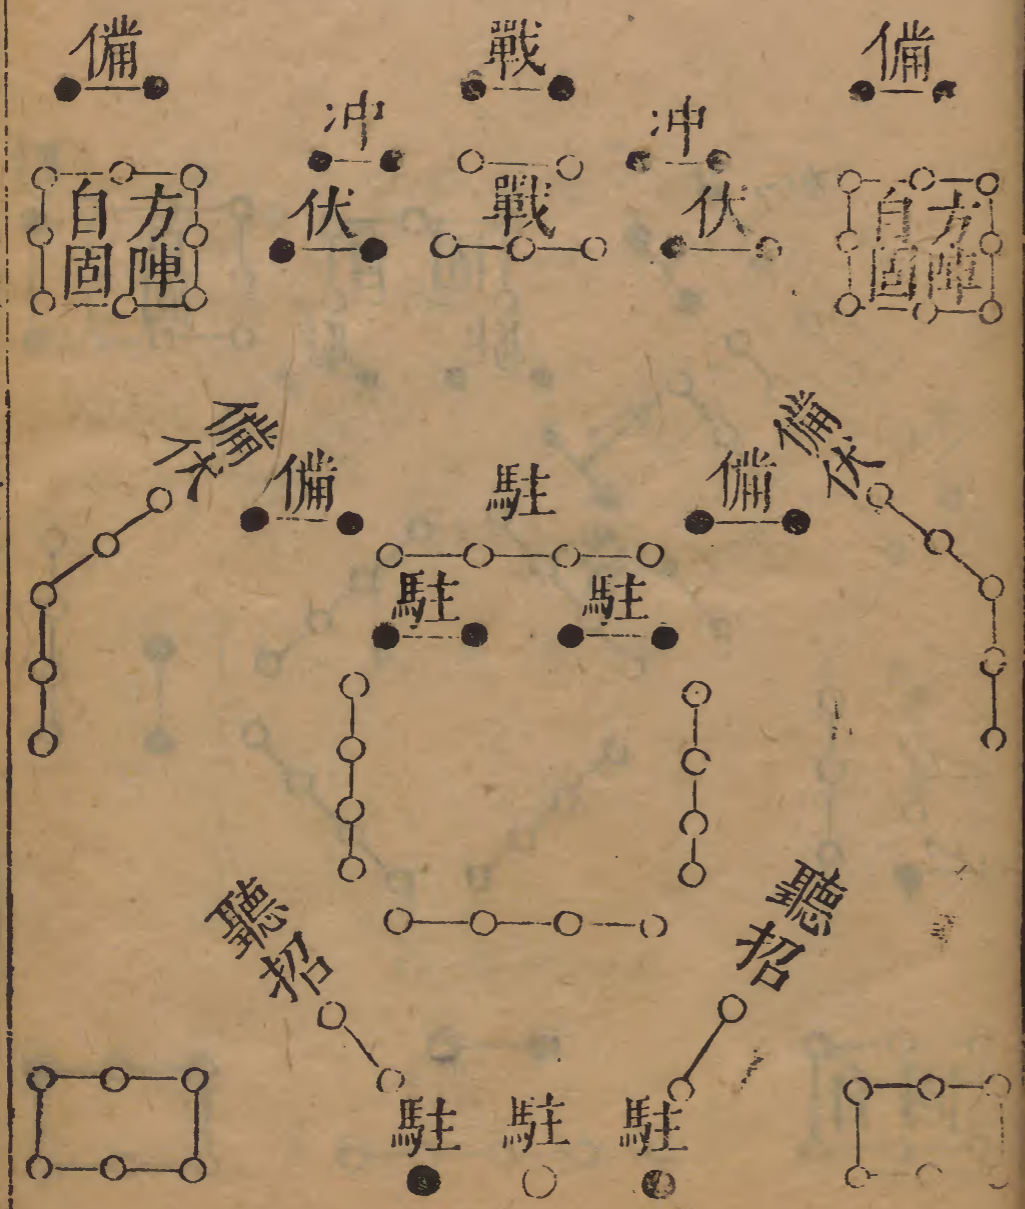 備
戰
備
冲
冲
方陣
自固
伏
戰
伏
方陣
自固
備伏
備
駐
備
備伏
駐
駐
聽招
聽招
駐
駐
駐